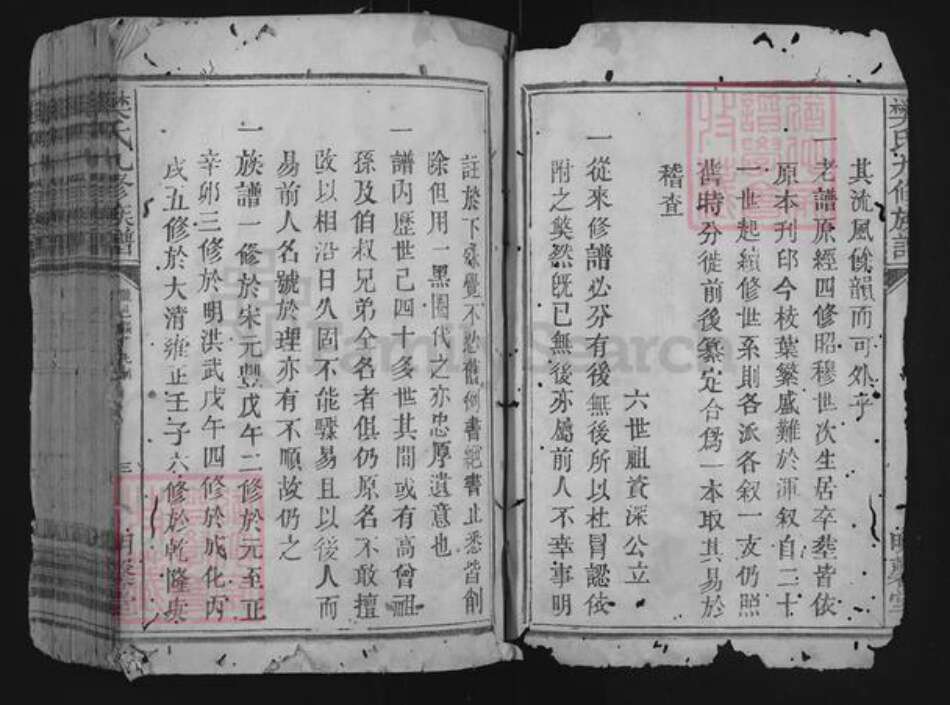 其流風餘韻而可外乎
一老譜原經四修昭穆世次生居卒塟皆依
原本刊印今枝葉繁盛難於渾叙自二十
一世起續修世系則各派各叙一支仍照
舊時分徙前後纂定合爲一本取其易於
稽查
六世祖資深公立
一從來修譜必分有後無後所以杜冒認佽
附之獘然既已無後亦屬前人不幸事明
註於下殊覺不忍舊例書絕書止悉皆削
除但用一黑圈代之亦忠厚遺意也
一譜內歷世已四十多世其間或有高曾祖
孫及伯叔兄弟仝名者俱仍原名不敢擅
改以相沿日久固不能驟易且以後人而
易前人名號於理亦有不順故仍之
一族譜一修於宋元豐戊午二修於元至正
辛卯三修於明洪武戊午四修於成化丙
戌五修於大清雍正壬子六修於乾隆庚
樊氏九修族譜
樊氏九修族譜
三
FamilySearch